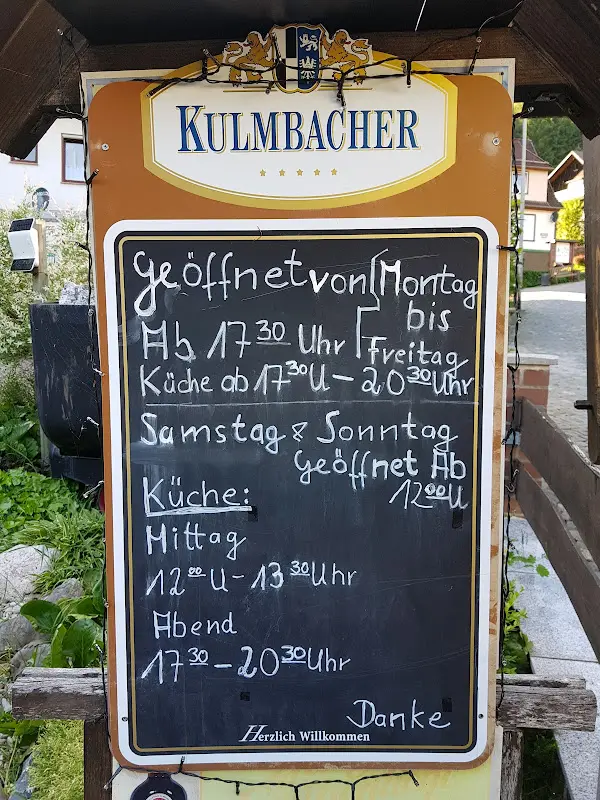 KULMBACHER
Geöffnet von Montag
bis
Ab 17 30 Uhr Freitag
Küche ab 17 30 U - 20 30 Uhr
Samstag & Sonntag
Geöffnet Ab
12 00 U
Küche:
Mittag
12 00 U - 13 30 Uhr
Abend
17 30 - 20 30 Uhr
Danke
Herzlich Willkommen